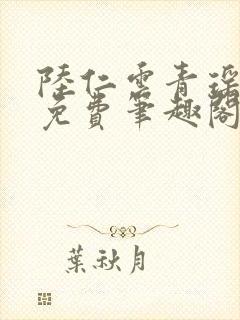 陸仁雲青瑤
免費筆趣閣
葉秋月